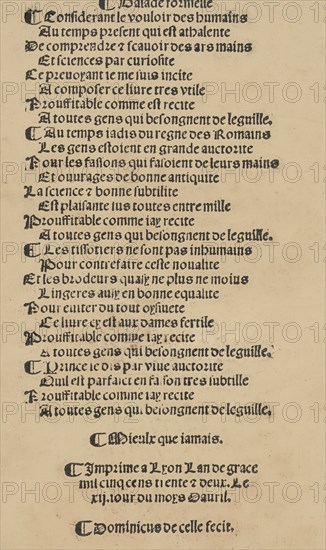 ¶ Balade formelle
¶ Considerant le vouloir des humains
Au temps present qui est athalente
De comprendre ⁊ scauoir des ars mains
Et sciences par curiosite
Ce preuoyant ie me suis incite
A composer ce liure tres vtile
Prouffitable comme est recite
A toutes gens qui besongnent de leguille.
¶ Au temps iadis du regne des Romains
Les gens estoient en grande auctorite
Pour les fassons qui faisoient de leurs mains
Et ouurages de bonne antiquite
La science ⁊ bonne subtilite
Est plaisante sus toutes entre mille
Prouffitable comme iay recite
A toutes gens qui besongnent de leguille.
¶ Les tissotiers ne sont pas inhumains
Pour contrefaire ceste noualite
Et les brodeurs quasy ne plus ne moins
Lingeres ausy en bonne equalite
Pour euiter du tout oysiuete
Ce liure cy est aux dames fertile
Prouffitable comme iay recite
A toutes gens qui besongnent de leguille.
¶ Prince ie dis par viue auctorite
Quil est parfaict en fason tres subtille
Prouffitable comme iay recite
A toutes gens qui besongnent de leguille.
¶ Mieulx que iamais.
¶ Imprime a Lyon Lan de grace
mil cinq cens trente ⁊ deux. Le
xij. iour du moys Dauril.
¶ Dominicus de celle fecit.